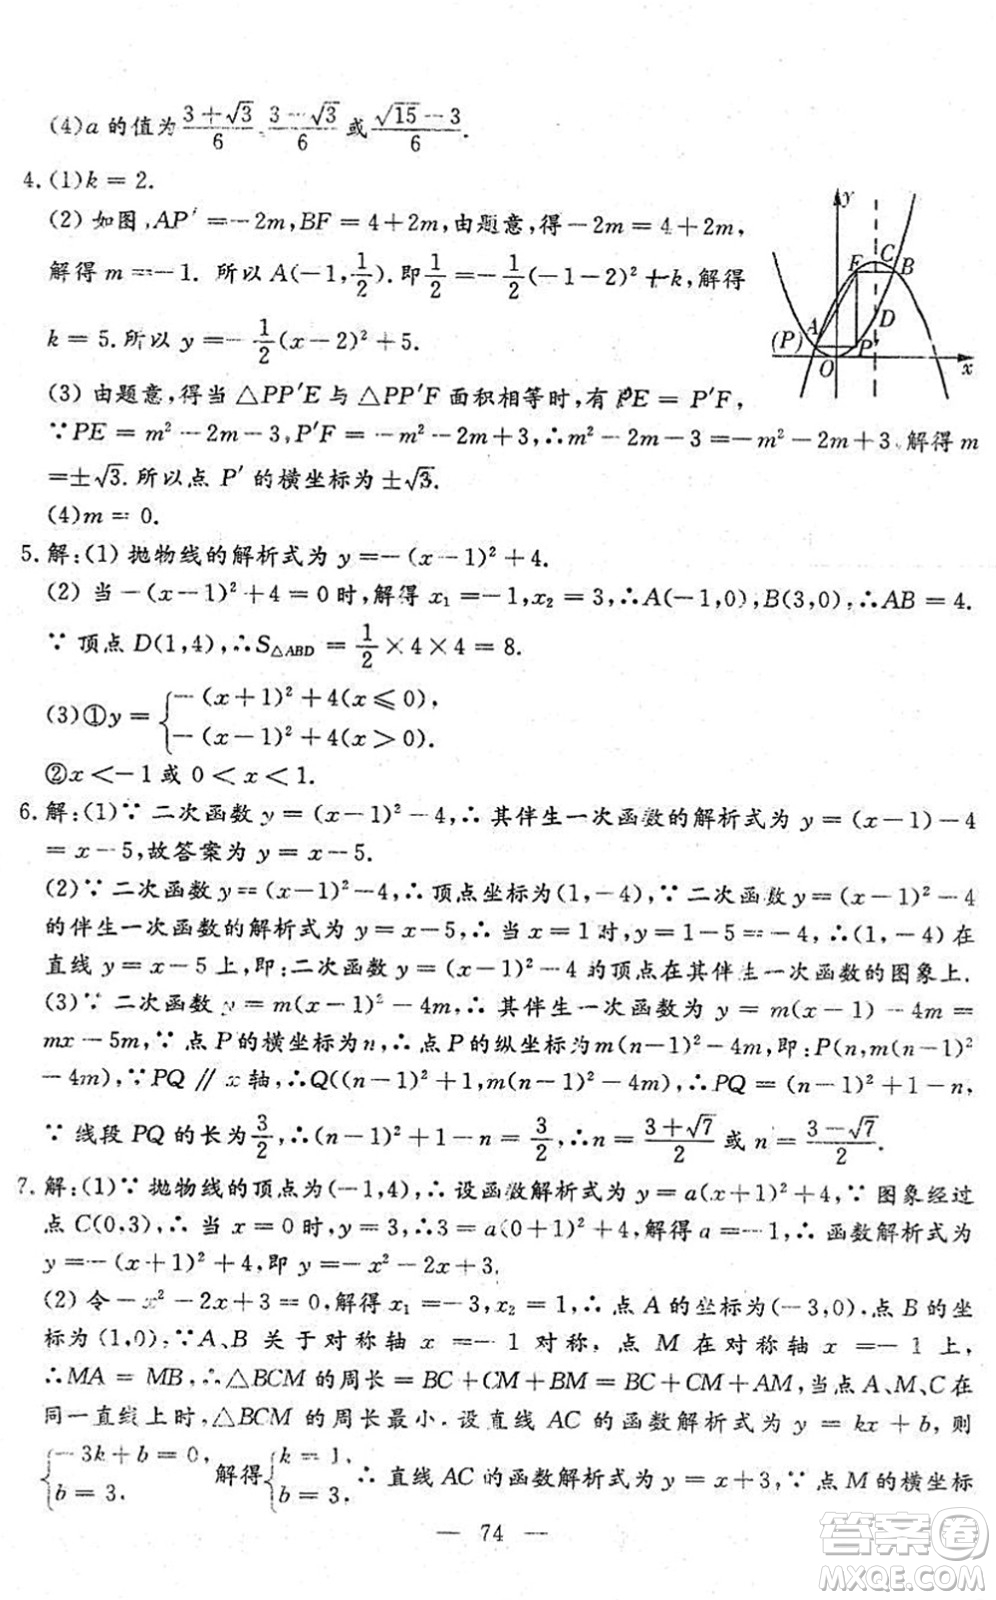 (4)a 的值为 (3+√3)/6、(3-√3)/6 或 (√15-3)/6.
4. (1)k = 2.
(2) 如图,AP' =-2m,BF = 4+2m,由题意,得-2m = 4+2m,
解得 m =-1. 所以 A(-1,1/2).即 1/2 =-1/2(-1-2)²+k,解得
k = 5.所以 y =-1/2(x-2)²+5.
(3) 由题意,得当 △PP'E 与 △PP'F 面积相等时,有 PE = P'F,
∵PE = m²-2m-3,P'F =-m²-2m+3,∴m²-2m-3 =-m²-2m+3,解得 m
=±√3.所以点 P' 的横坐标为 ±√3.
(4)m = 0.
y
E
C
B
A
D
(P)
P'
O
x
5. 解:(1) 抛物线的解析式为 y =-(x-1)²+4.
(2) 当 -(x-1)²+4 = 0 时,解得 x₁ =-1,x₂ = 3,∴A(-1,0),B(3,0),∴AB = 4.
∵ 顶点 D(1,4),∴S△ABD = 1/2 ×4×4 = 8.
(3)①y = { -(x+1)²+4(x ≤ 0),
-(x-1)²+4(x > 0).
②x <-1 或 0 < x < 1.
6. 解:(1)∵ 二次函数 y = (x-1)²-4,∴ 其伴生一次函数的解析式为 y = (x-1)-4
= x-5,故答案为 y = x-5.
(2)∵ 二次函数 y = (x-1)²-4,∴ 顶点坐标为(1,-4),∵ 二次函数 y = (x-1)²-4
的伴生一次函数的解析式为 y = x-5,∴ 当 x = 1 时,y = 1-5 =-4,∴(1,-4) 在
直线 y = x-5 上,即:二次函数 y = (x-1)²-4 的顶点在其伴生一次函数的图象上.
(3)∵ 二次函数 y = m(x-1)²-4m,∴ 其伴生一次函数为 y = m(x-1)-4m =
mx-5m,∵ 点 P 的横坐标为 n,∴ 点 P 的纵坐标为 m(n-1)²-4m,即:P(n,m(n-1)²
-4m),∵PQ // x 轴,∴Q((n-1)²+1,m(n-1)²-4m),∴PQ = (n-1)²+1-n,
∵ 线段 PQ 的长为 3/2,∴(n-1)²+1-n = 3/2,∴n = (3+√7)/2 或 n = (3-√7)/2.
7. 解:(1)∵ 抛物线的顶点为(-1,4),∴ 设函数解析式为 y = a(x+1)²+4,∵ 图象经过
点 C(0,3),∴ 当 x = 0 时,y = 3,∴3 = a(0+1)²+4,解得 a =-1,∴ 函数解析式为
y =-(x+1)²+4,即 y =-x²-2x+3.
(2) 令 -x²-2x+3 = 0,解得 x₁ =-3,x₂ = 1,∴ 点 A 的坐标为(-3,0).点 B 的坐
标为(1,0),∵A、B 关于对称轴 x =-1 对称,点 M 在对称轴 x =-1 上,
∴MA = MB,∴△BCM 的周长 = BC+CM+BM = BC+CM+AM,当点 A、M、C 在
同一直线上时,△BCM 的周长最小.设直线 AC 的函数解析式为 y = kx + b,则
{ -3k+b = 0, 解得 { k = 1, ∴ 直线 AC 的函数解析式为 y = x+3,∵ 点 M 的横坐标
b = 3. b = 3.
— 74 —
答案圈
MXQE.COM